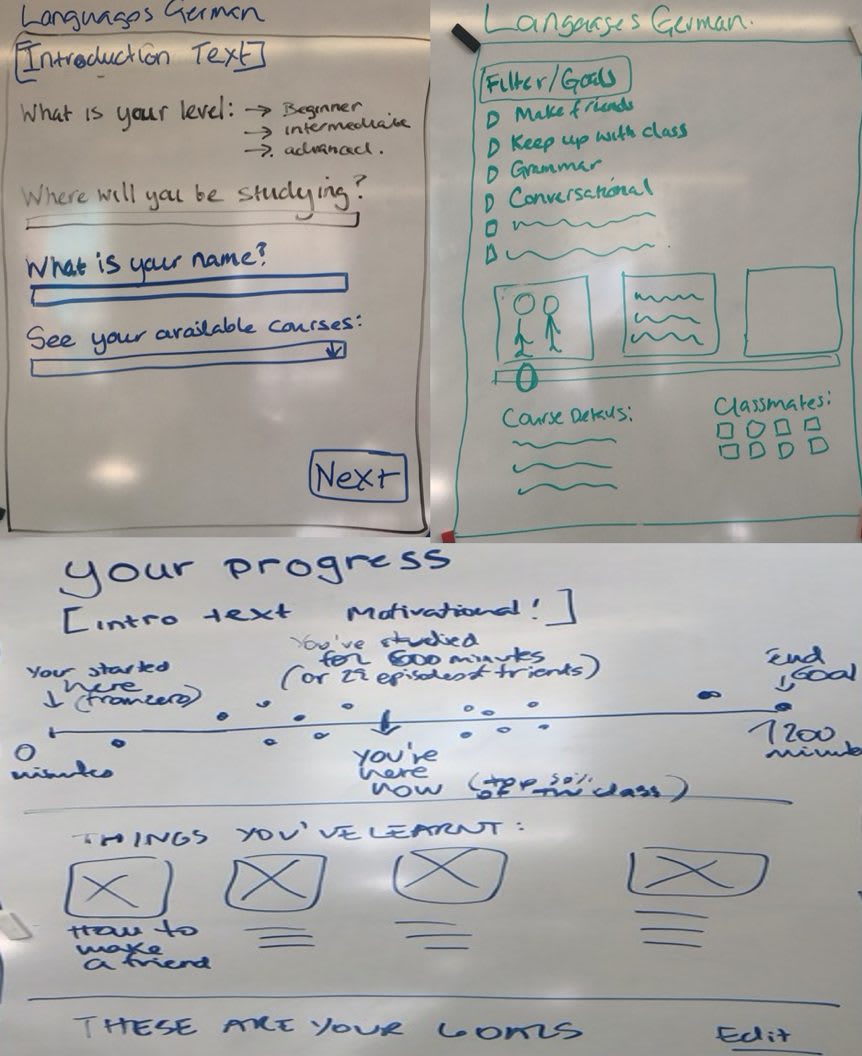 Languages German
[Introduction Text]
What is your level: → Beginner
→ intermediate
→ advanced.
Where will you be studying?
What is your name?
See your available courses:
Next
Languages German.
Filter/Goals
Make friends
Keep up with class
Grammar
Conversational
Course Details:
Classmates:
your progress
[intro text Motivational!]
You've studied
for 600 minutes
(or 29 episodes of friends)
Your started
here
(from zero)
End
Goal
0
minutes
you're
here
now (top 50%
of the class)
1200
minutes
THINGS YOU'VE LEARNT:
How to
make
a friend
THESE ARE YOUR GOALS
Edit